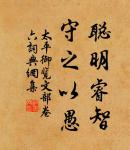 聰明睿智
守之以愚
太平御覽文部卷
六詞典網集